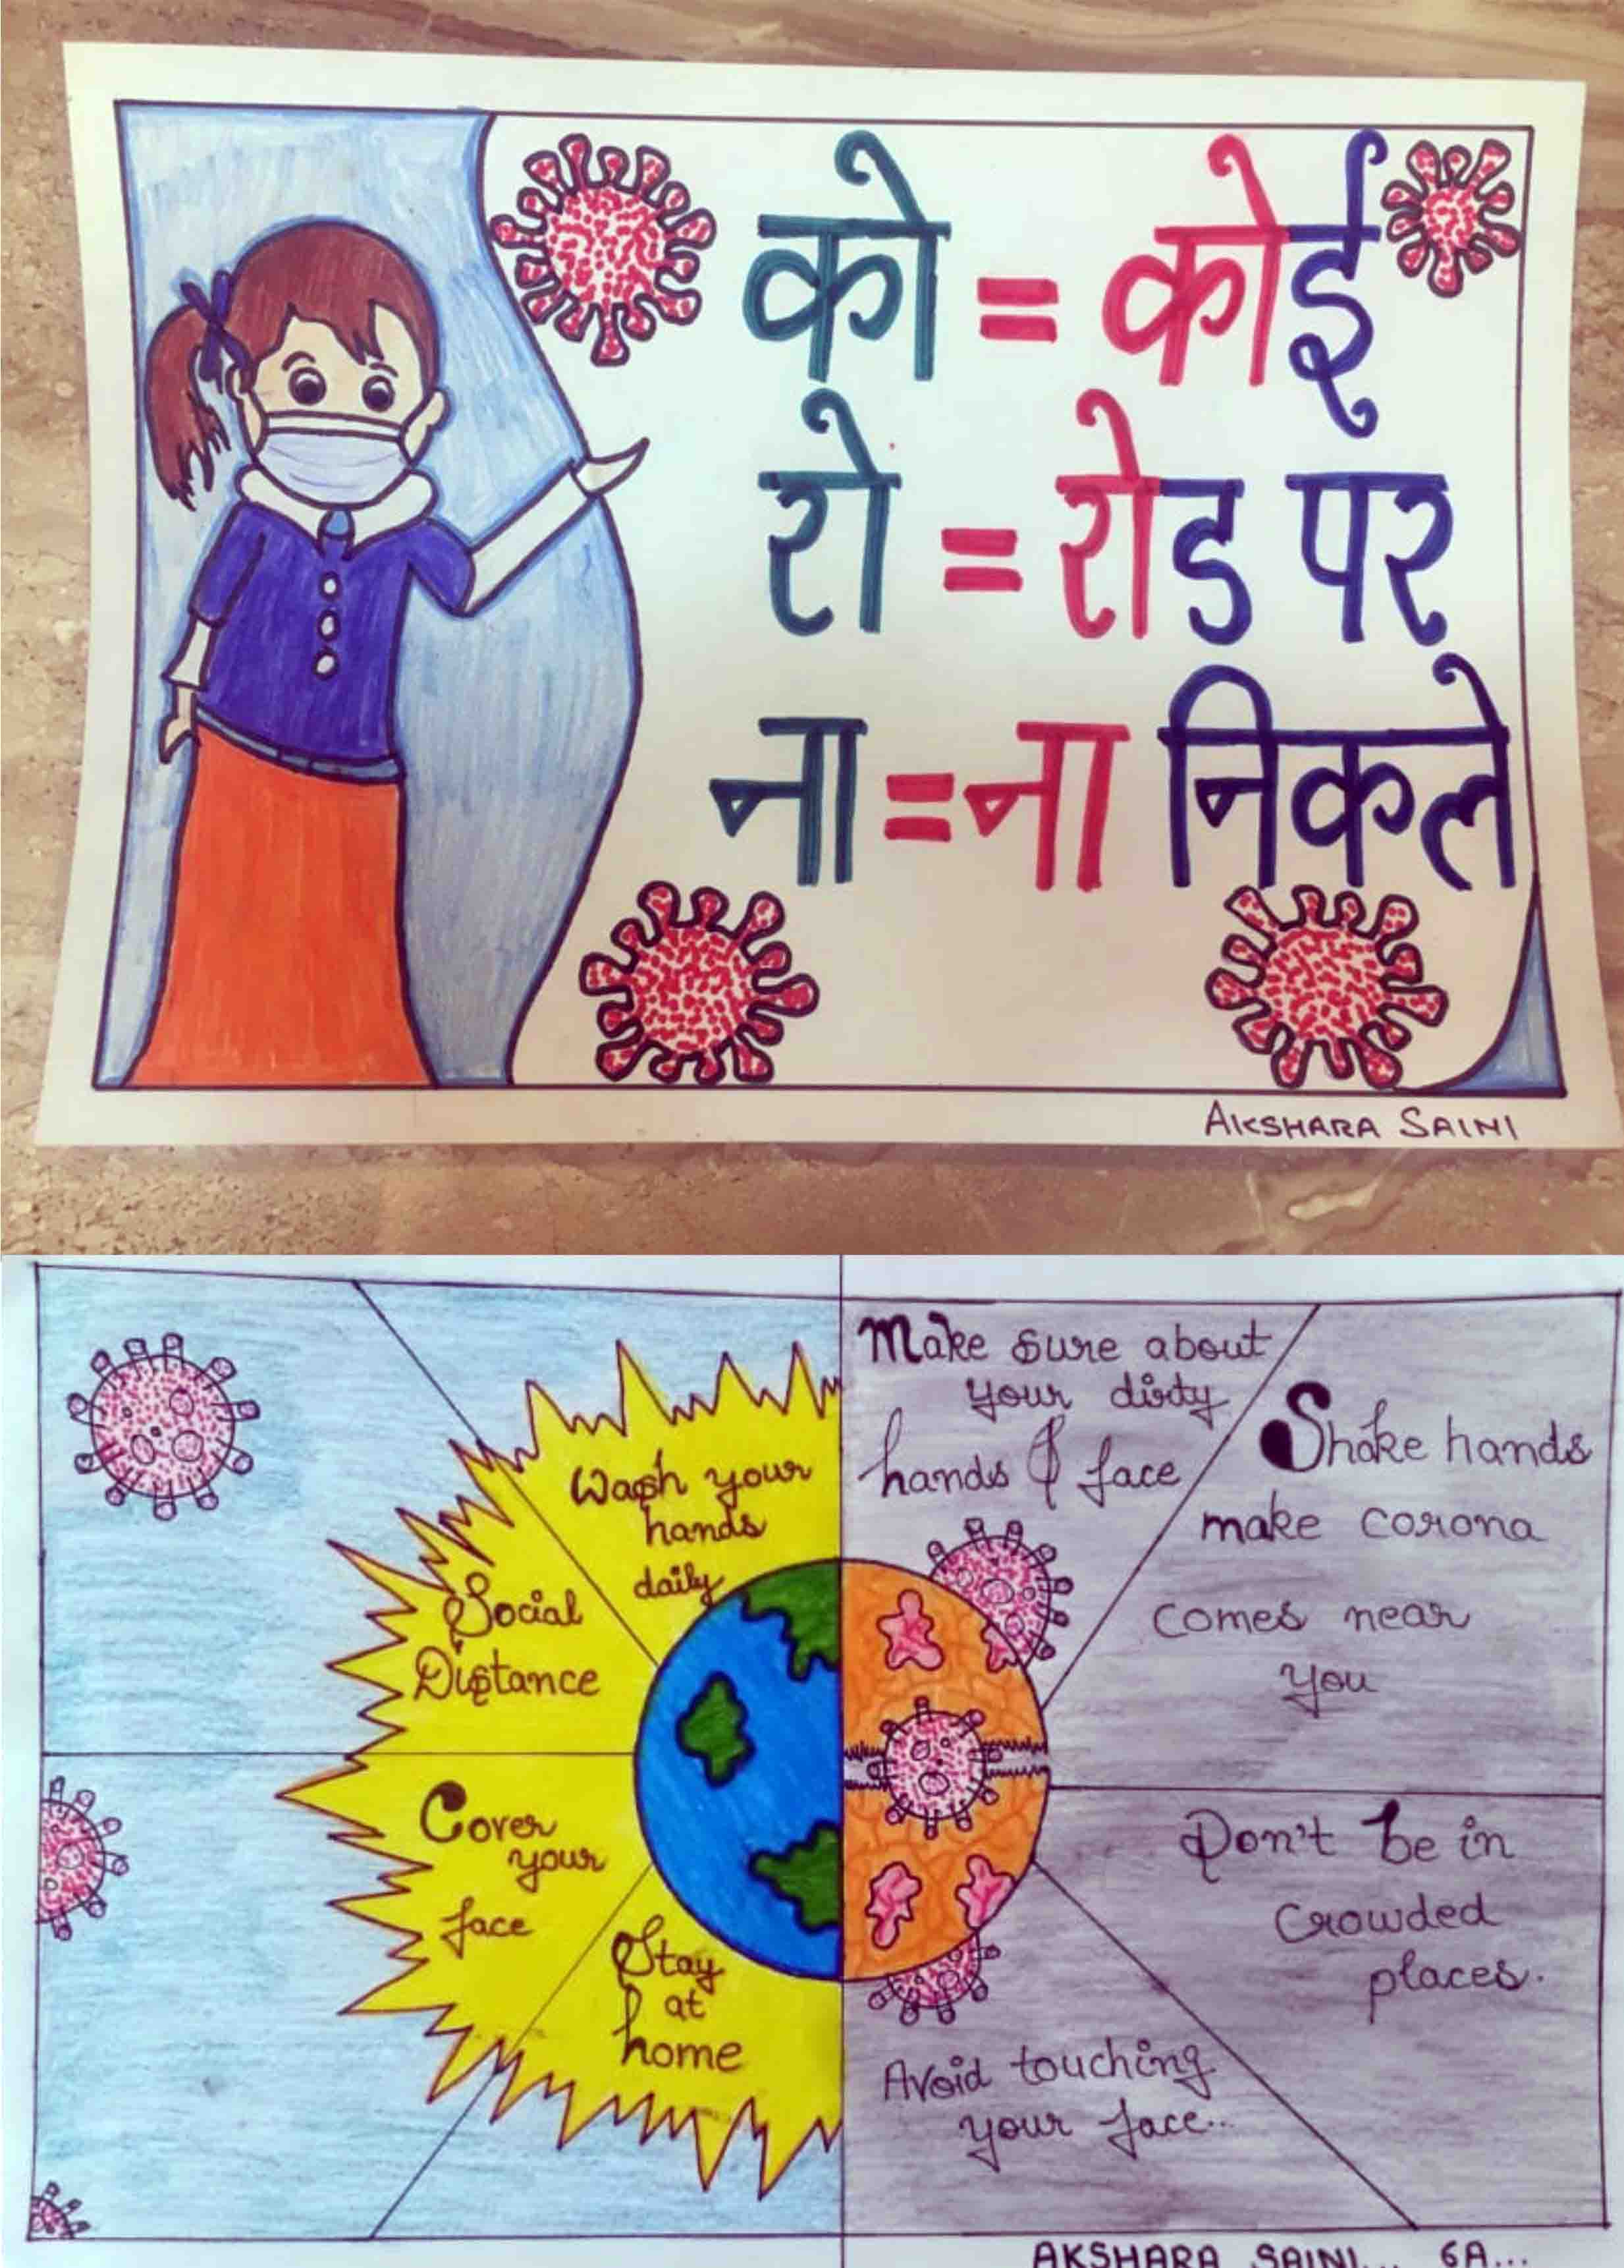 को = कोई
रो = रोड पर
ना = ना निकले
AKSHARA SAINI
Wash your
hands
daily
Social
Distance
Cover
your
face
Stay
at
home
Make sure about
your dirty
hands & face
Shake hands
make corona
comes near
you
Don't be in
Crowded
places.
Avoid touching
your face...
AKSHARA SAINI... 6A...